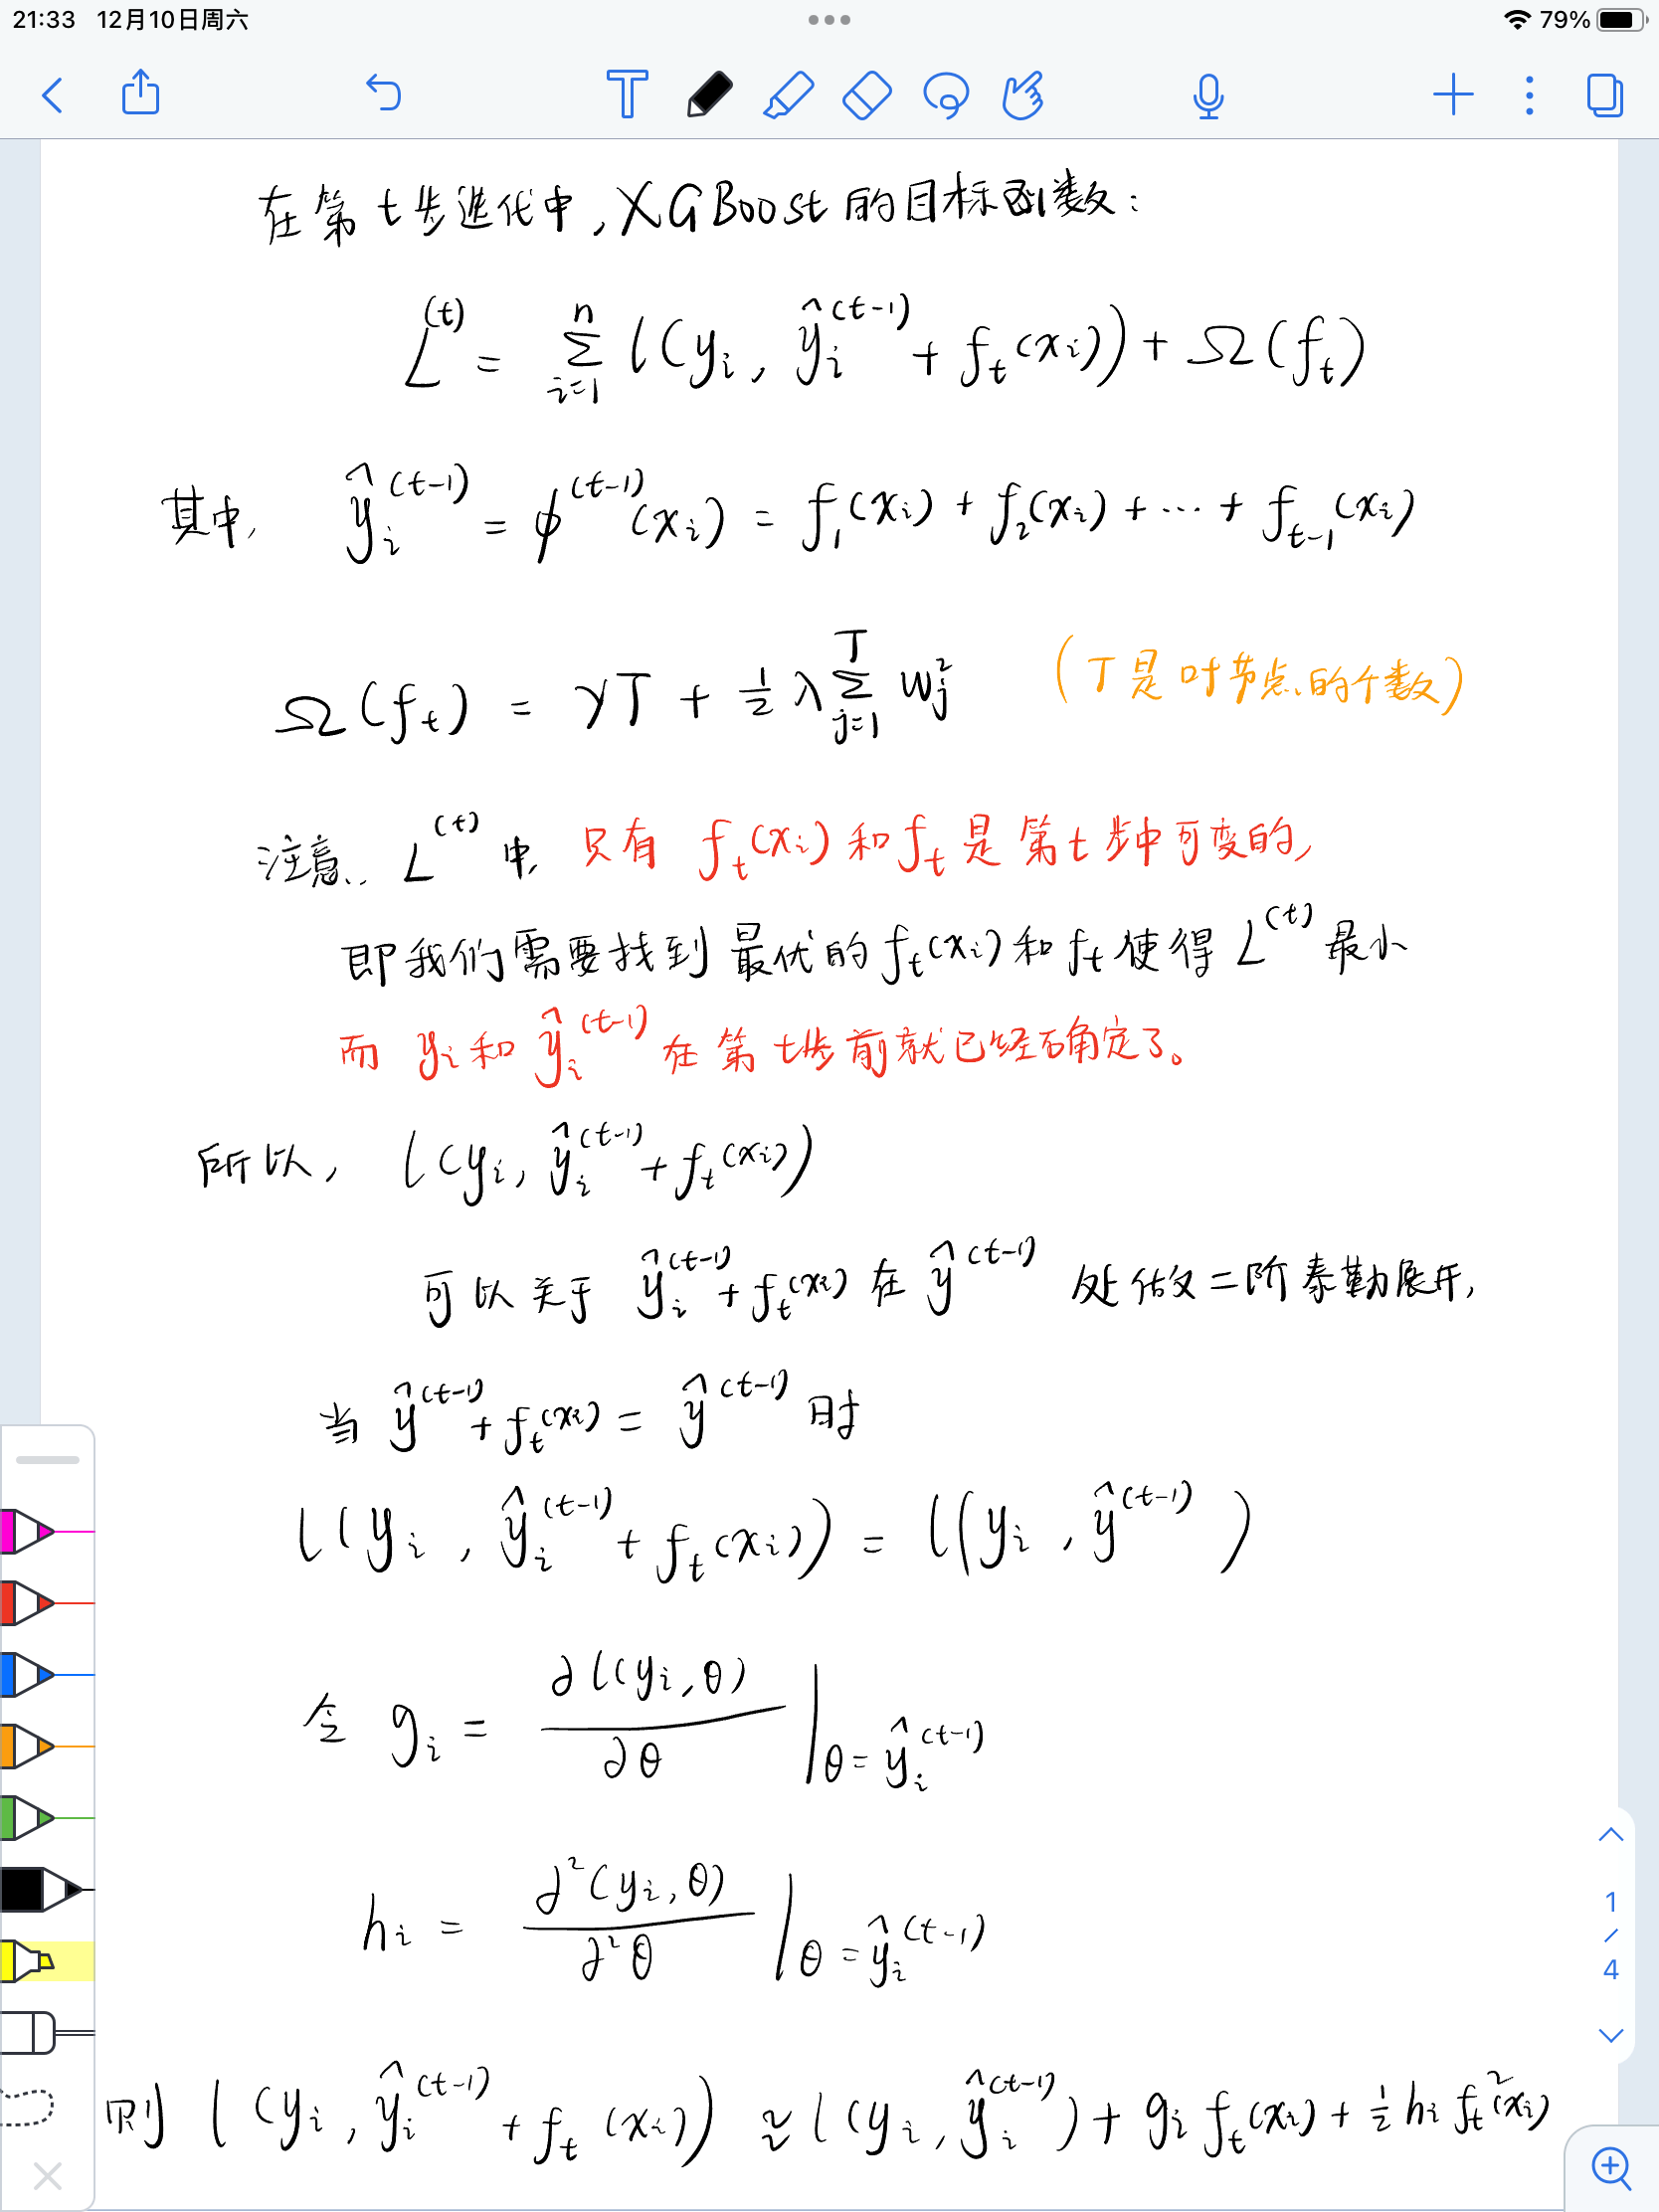 21:33 12月10日周六 79%
在第t步迭代中,XGBoost的目标函数:
L^(t) = Σ_{i=1}^{n} l(y_i, ŷ_i^(t-1) + f_t(x_i)) + Ω(f_t)
其中, ŷ_i^(t-1) = φ^(t-1)(x_i) = f_1(x_i) + f_2(x_i) + ··· + f_{t-1}(x_i)
Ω(f_t) = γT + ½ λ Σ_{j=1}^{T} w_j^2 (T是叶节点的个数)
注意, L^(t) 中, 只有 f_t(x_i) 和 f_t 是第t步中可变的,
即我们需要找到最优的 f_t(x_i) 和 f_t 使得 L^(t) 最小
而 y_i 和 ŷ_i^(t-1) 在第t步前就已经确定了。
所以, l(y_i, ŷ_i^(t-1) + f_t(x_i))
可以关于 ŷ_i^(t-1) + f_t(x_i) 在 ŷ^(t-1) 处做二阶泰勒展开,
当 ŷ^(t-1) + f_t(x_i) = ŷ^(t-1) 时
l(y_i, ŷ_i^(t-1) + f_t(x_i)) = l(y_i, ŷ^(t-1))
令 g_i = ∂l(y_i, θ) / ∂θ |_{θ = ŷ_i^(t-1)}
h_i = ∂²(y_i, θ) / ∂²θ |_{θ = ŷ_i^(t-1)}
则 l(y_i, ŷ_i^(t-1) + f_t(x_i)) ≈ l(y_i, ŷ_i^(t-1)) + g_i f_t(x_i) + ½ h_i f_t²(x_i)
1
/
4